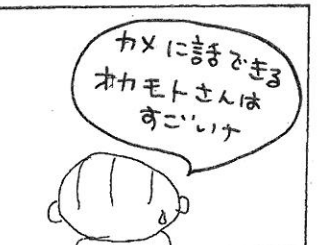 カメに話できる
オカモトさんは
すごいナ